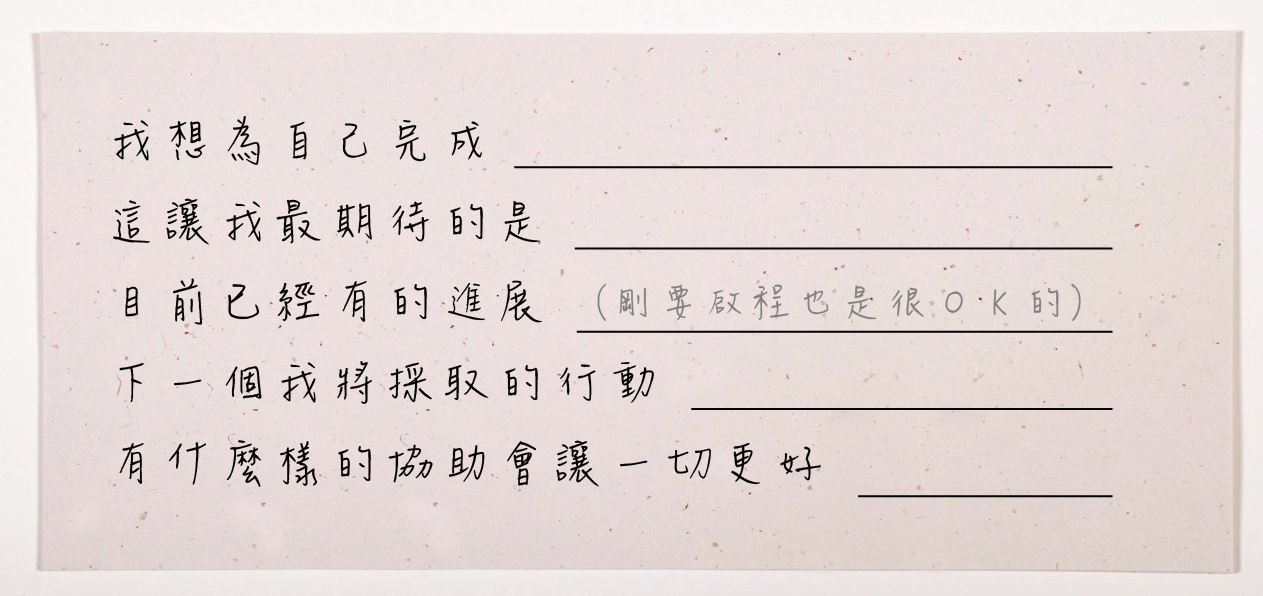 我想為自己完成
這讓我最期待的是
目前已經有的進展 (剛要啟程也是很OK的)
下一個我將採取的行動
有什麼樣的協助會讓一切更好